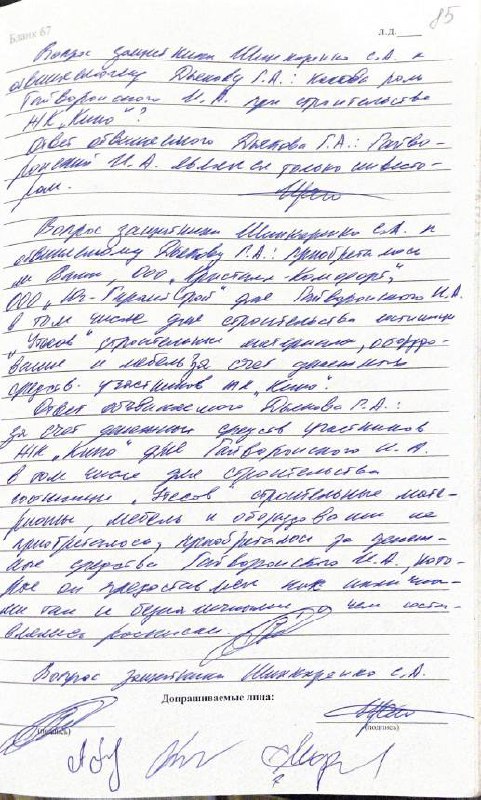 85
Бланк 67
л.д.
Вопрос защитника Шинкаренко С.А. к
обвиняемому Дьякову Г.А.: какова роль
Гайворонского И.А. при строительстве
ЖК „Кино"?
Ответ обвиняемого Дьякова Г.А.: Гайво-
ронский И.А. являлся только инвесто-
ром.
Вопрос защитника Шинкаренко С.А. к
обвиняемому Дьякову Г.А.: приобретались
ли Вами, ООО „Кристалл Комфорт",
ООО „Юг-ГарантСтрой" для Гайворонского И.А.
в том числе для строительства гостиницы
„Утесов" строительные материалы, оборудо-
вание и мебель за счет денежных
средств участников ЖК „Кино".
Ответ обвиняемого Дьякова Г.А.:
за счет денежных средств участников
ЖК „Кино" для Гайворонского И.А.
в том числе для строительства
гостиницы „Утесов" строительные мате-
риалы, мебель и оборудование не
приобреталось, приобретались за денеж-
ные средства Гайворонского И.А., кото-
рые он предоставлял как наличны-
ми так и безналичными, о чем состав-
лялись расписки.
Вопрос защитника Шинкаренко С.А.
Допрашиваемые лица:
(подпись) (подпись)